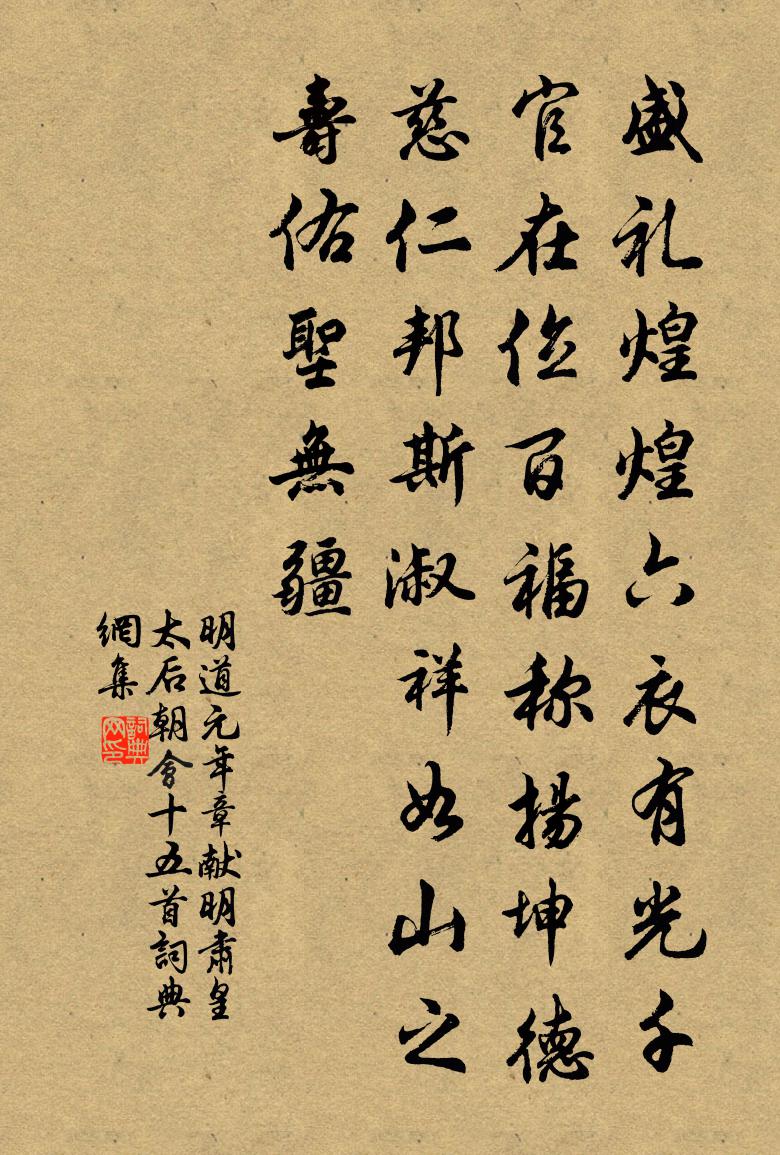 盛礼煌煌六衣有光千
官在位百福称揚坤德
慈仁邦斯淑祥如山之
壽佑聖無疆
明道元年章献明肅皇
太后朝會十五首詞典
網集
詞典网印